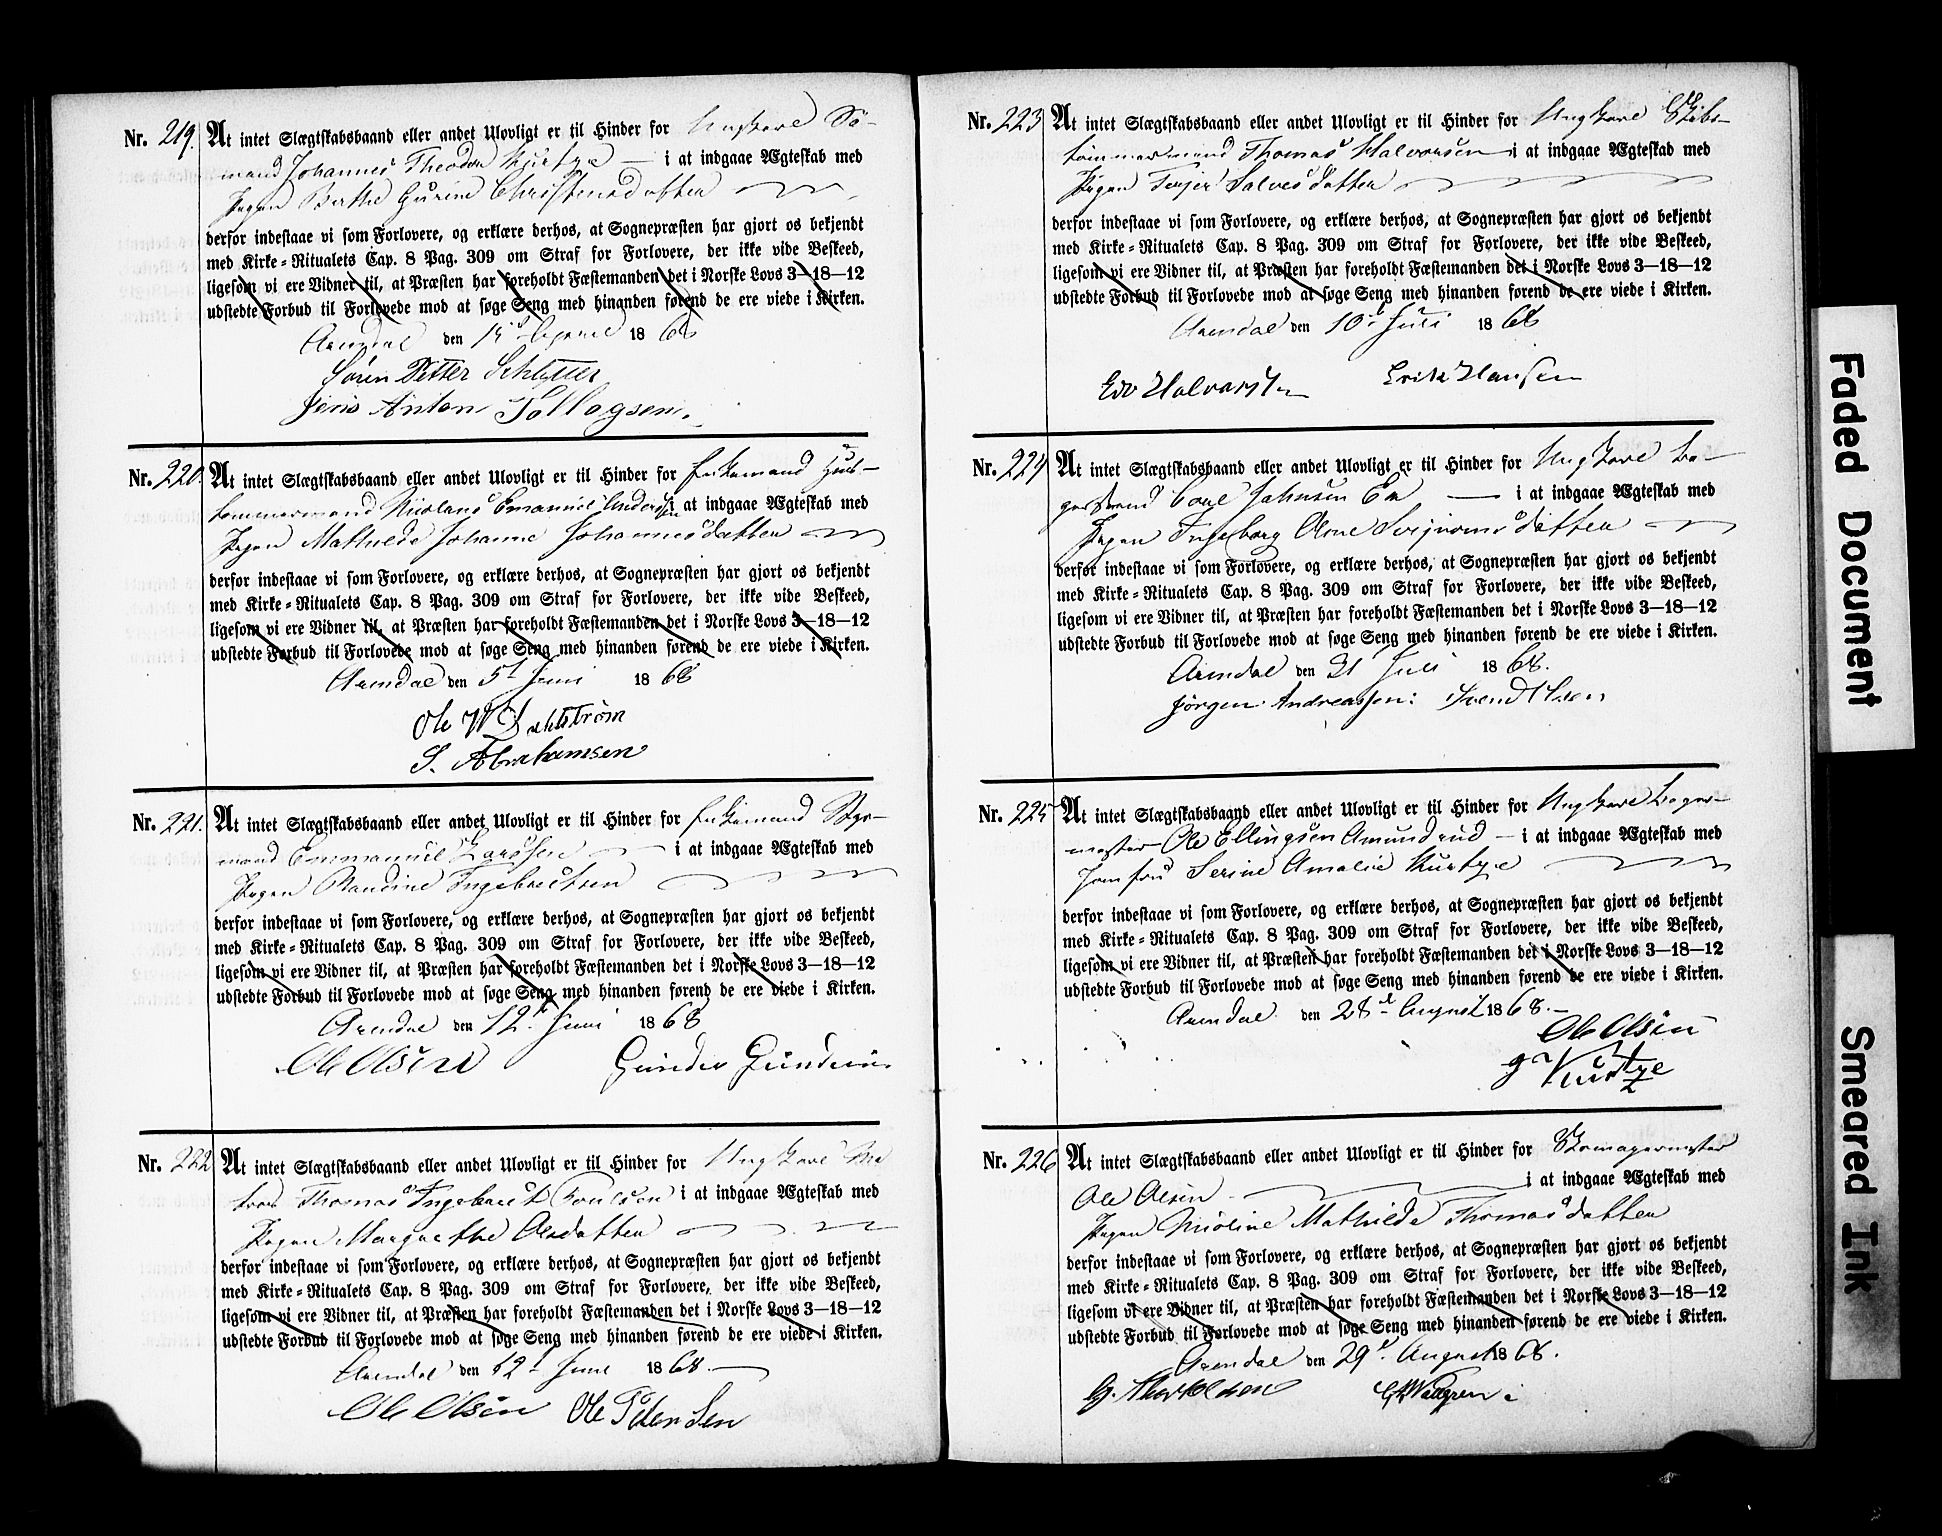 Nr. 219. At intet Slægtskabsbaand eller andet Ulovligt er til Hinder for Ungkarl Sø-
mand Johannes Theodor i at indgaae Ægteskab med
Pigen Berthe Gurine Christensdatter
derfor indestaae vi som Forlovere, og erklære derhos, at Sognepræsten har gjort os bekjendt
med Kirke-Ritualets Cap. 8 Pag. 309 om Straf for Forlovere, der ikke vide Beskeed,
ligesom vi ere Vidner til, at Præsten har foreholdt Fæstemanden det i Norske Lovs 3—18—12
udstedte Forbud til Forlovede mod at søge Seng med hinanden førend de ere viede i Kirken.
Arendal den 1868
Søren Petter Schlytter
Jens Anton Tollagsen.
Nr. 220. At intet Slægtskabsbaand eller andet Ulovligt er til Hinder for Enkemand Huus-
tømmermand Nicolaus Emanuel Andersen i at indgaae Ægteskab med
Pigen Mathilde Johanne Johannesdatter
derfor indestaae vi som Forlovere, og erklære derhos, at Sognepræsten har gjort os bekjendt
med Kirke-Ritualets Cap. 8 Pag. 309 om Straf for Forlovere, der ikke vide Beskeed,
ligesom vi ere Vidner til, at Præsten har foreholdt Fæstemanden det i Norske Lovs 3—18—12
udstedte Forbud til Forlovede mod at søge Seng med hinanden førend de ere viede i Kirken.
Arendal den 5t Juni 1868
Ole W
S. Abrahamsen
Nr. 221. At intet Slægtskabsbaand eller andet Ulovligt er til Hinder for Enkemand Styr-
mand Emmanuel Larssen i at indgaae Ægteskab med
Pigen Ingebretsen
derfor indestaae vi som Forlovere, og erklære derhos, at Sognepræsten har gjort os bekjendt
med Kirke-Ritualets Cap. 8 Pag. 309 om Straf for Forlovere, der ikke vide Beskeed,
ligesom vi ere Vidner til, at Præsten har foreholdt Fæstemanden det i Norske Lovs 3—18—12
udstedte Forbud til Forlovede mod at søge Seng med hinanden førend de ere viede i Kirken.
Arendal den 12t Juni 1868
Ole Olsen Gunder Gundersen
Nr. 222 At intet Slægtskabsbaand eller andet Ulovligt er til Hinder for Ungkarl Ma
tros Thomas Ingebret i at indgaae Ægteskab med
Pigen Margrethe Olsdatter
derfor indestaae vi som Forlovere, og erklære derhos, at Sognepræsten har gjort os bekjendt
med Kirke-Ritualets Cap. 8 Pag. 309 om Straf for Forlovere, der ikke vide Beskeed,
ligesom vi ere Vidner til, at Præsten har foreholdt Fæstemanden det i Norske Lovs 3—18—12
udstedte Forbud til Forlovede mod at søge Seng med hinanden førend de ere viede i Kirken.
Arendal den 12t Juni 1868.
Ole Olsen Ole Petersen
Nr. 223 At intet Slægtskabsbaand eller andet Ulovligt er til Hinder for Ungkarl Skibs-
tømmermand Thomas Halvorsen i at indgaae Ægteskab med
Pigen Terjer Salvesdatter
derfor indestaae vi som Forlovere, og erklære derhos, at Sognepræsten har gjort os bekjendt
med Kirke-Ritualets Cap. 8 Pag. 309 om Straf for Forlovere, der ikke vide Beskeed,
ligesom vi ere Vidner til, at Præsten har foreholdt Fæstemanden det i Norske Lovs 3—18—12
udstedte Forbud til Forlovede mod at søge Seng med hinanden førend de ere viede i Kirken.
Arendal den 10t Juli 1868
Edv Halvorsen Erik Hansen
Nr. 224 At intet Slægtskabsbaand eller andet Ulovligt er til Hinder for Ungkarl Ba-
gersvend Carl Johnsen Eie i at indgaae Ægteskab med
Pigen Ingeborg Olene
derfor indestaae vi som Forlovere, og erklære derhos, at Sognepræsten har gjort os bekjendt
med Kirke-Ritualets Cap. 8 Pag. 309 om Straf for Forlovere, der ikke vide Beskeed,
ligesom vi ere Vidner til, at Præsten har foreholdt Fæstemanden det i Norske Lovs 3—18—12
udstedte Forbud til Forlovede mod at søge Seng med hinanden førend de ere viede i Kirken.
Arendal den 31 Juli 1868.
Jørgen Andreassen: Svend Olsen
Nr. 225 At intet Slægtskabsbaand eller andet Ulovligt er til Hinder for Ungkarl Bager-
mester Ole Ellingsen Amundrud i at indgaae Ægteskab med
Jomfru Serine Amalie Kurtze
derfor indestaae vi som Forlovere, og erklære derhos, at Sognepræsten har gjort os bekjendt
med Kirke-Ritualets Cap. 8 Pag. 309 om Straf for Forlovere, der ikke vide Beskeed,
ligesom vi ere Vidner til, at Præsten har foreholdt Fæstemanden det i Norske Lovs 3—18—12
udstedte Forbud til Forlovede mod at søge Seng med hinanden førend de ere viede i Kirken.
Arendal den 28t August 1868.
Ole Olsen
J Kurtze
Nr. 226 At intet Slægtskabsbaand eller andet Ulovligt er til Hinder for Skomagermester
Ole Olsen i at indgaae Ægteskab med
Pigen Nicoline Mathilde Thomasdatter
derfor indestaae vi som Forlovere, og erklære derhos, at Sognepræsten har gjort os bekjendt
med Kirke-Ritualets Cap. 8 Pag. 309 om Straf for Forlovere, der ikke vide Beskeed,
ligesom vi ere Vidner til, at Præsten har foreholdt Fæstemanden det i Norske Lovs 3—18—12
udstedte Forbud til Forlovede mod at søge Seng med hinanden førend de ere viede i Kirken.
Arendal den 29t August 1868.
Faded Document
Smeared Ink